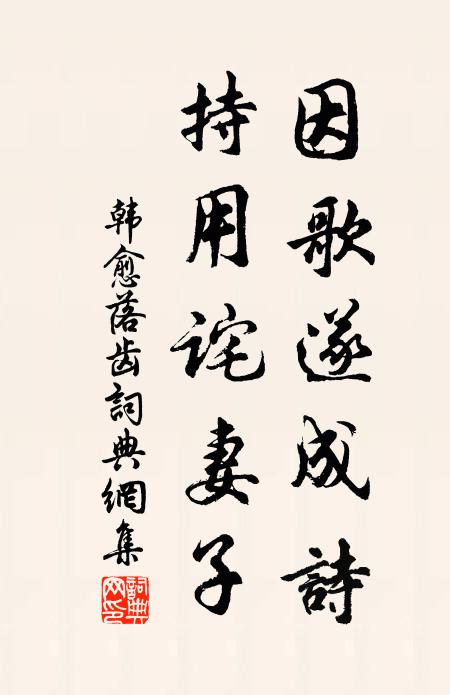 因歌遂成詩
持用詫妻子
韩愈落齿詞典網集
詞典網印